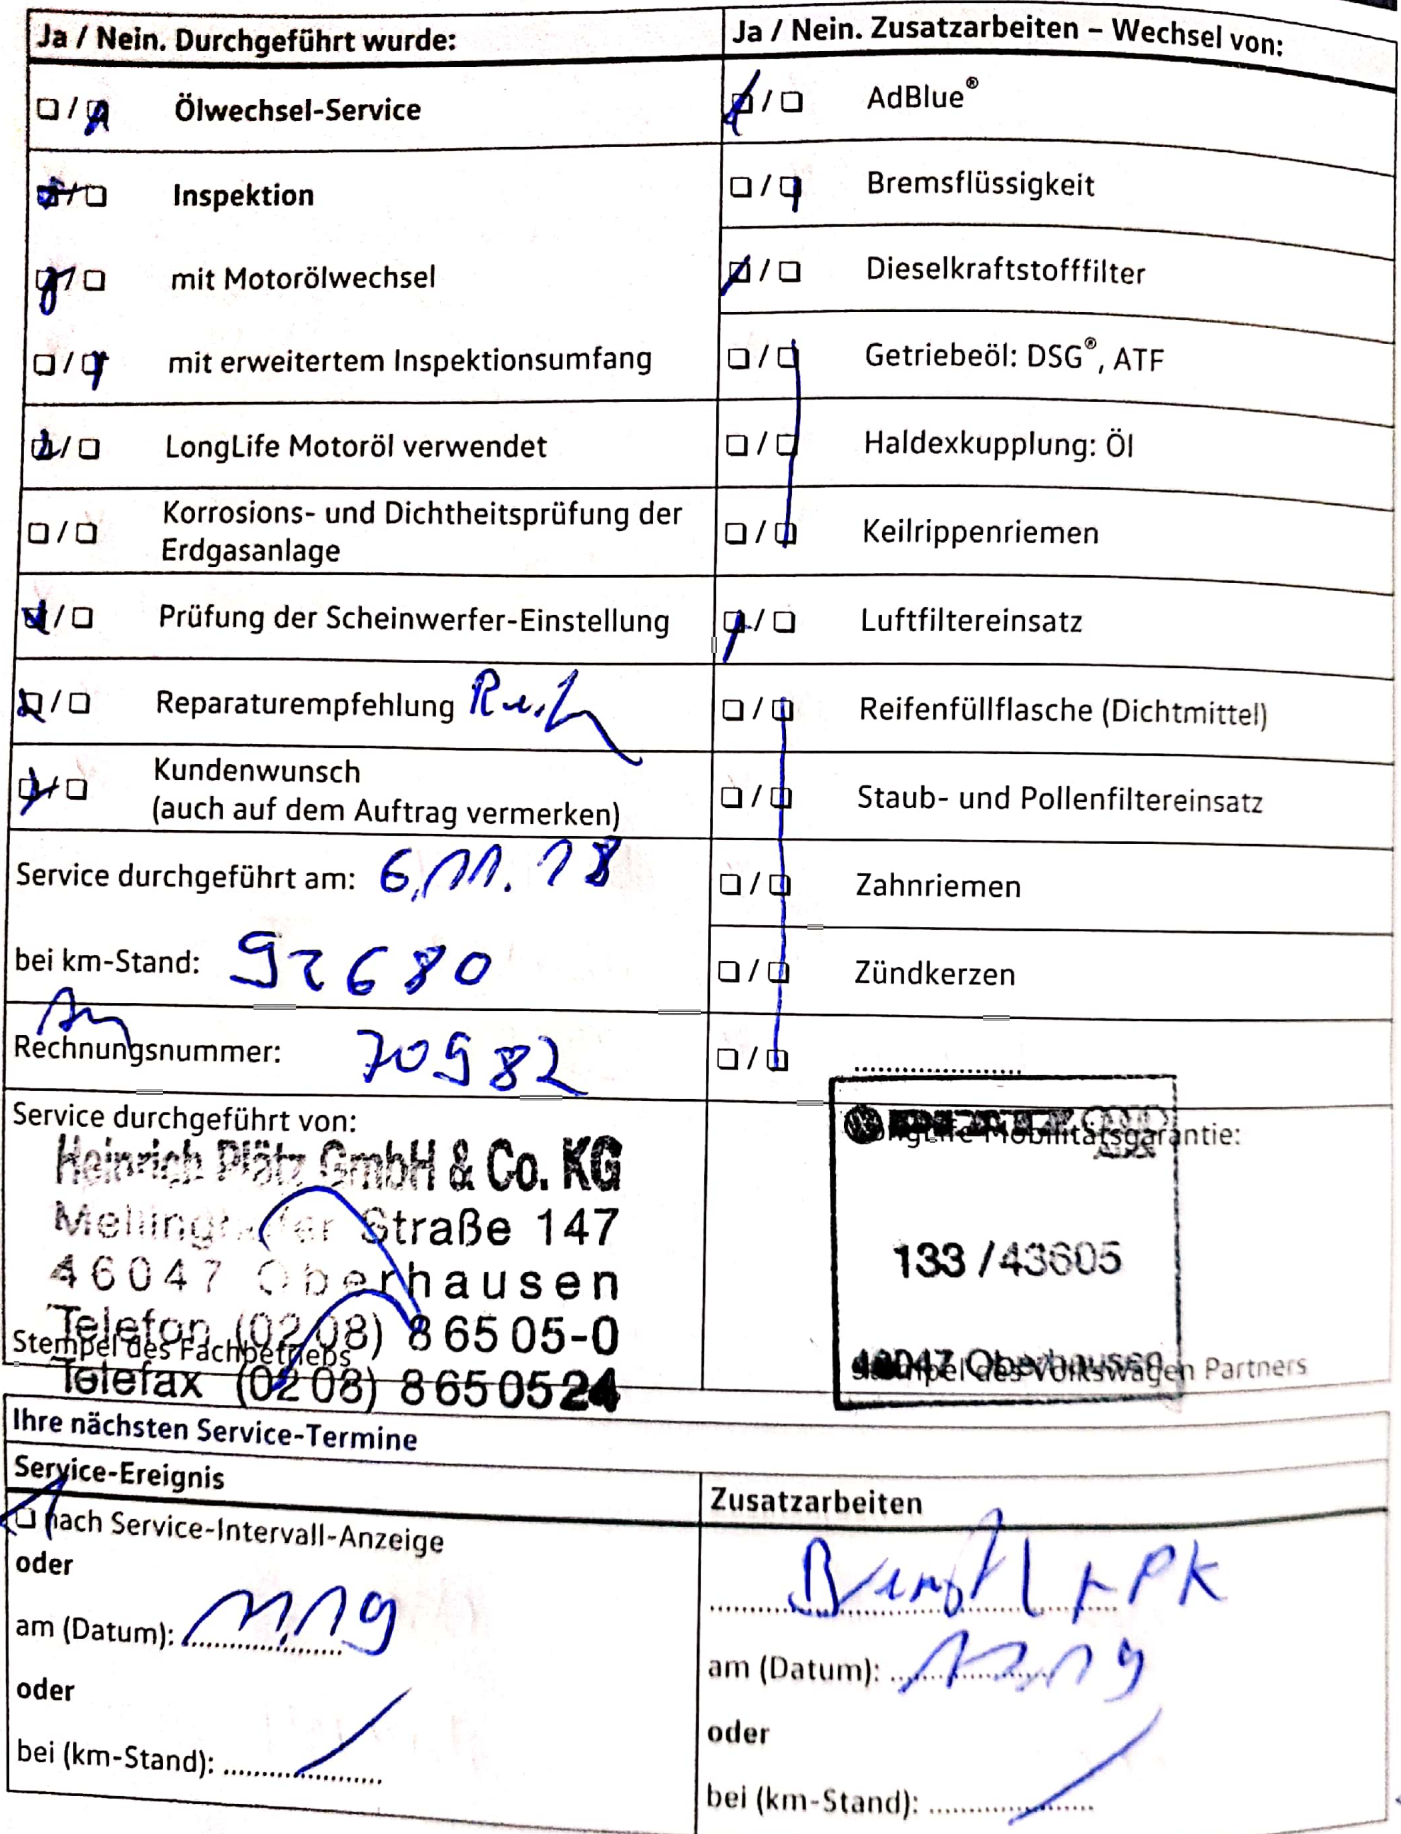 Ja / Nein. Durchgeführt wurde:
□ / □ Ölwechsel-Service
□ / □ Inspektion
□ / □ mit Motorölwechsel
□ / □ mit erweitertem Inspektionsumfang
□ / □ LongLife Motoröl verwendet
□ / □ Korrosions- und Dichtheitsprüfung der
Erdgasanlage
□ / □ Prüfung der Scheinwerfer-Einstellung
□ / □ Reparaturempfehlung
□ / □ Kundenwunsch
(auch auf dem Auftrag vermerken)
Service durchgeführt am: 6.11.18
bei km-Stand: 92680
Rechnungsnummer: 70982
Service durchgeführt von:
Heinrich Plätz GmbH & Co. KG
Straße 147
46047 Oberhausen
Telefon (0208) 8 65 05-0
Stempel des Fachbetriebs
Telefax (0208) 8 65 05 24
Ja / Nein. Zusatzarbeiten – Wechsel von:
□ / □ AdBlue®
□ / □ Bremsflüssigkeit
□ / □ Dieselkraftstofffilter
□ / □ Getriebeöl: DSG®, ATF
□ / □ Haldexkupplung: Öl
□ / □ Keilrippenriemen
□ / □ Luftfiltereinsatz
□ / □ Reifenfüllflasche (Dichtmittel)
□ / □ Staub- und Pollenfiltereinsatz
□ / □ Zahnriemen
□ / □ Zündkerzen
□ / □ ....................
LongLife Mobilitätsgarantie:
133 / 43605
46047 Oberhausen
Stempel des Volkswagen Partners
Ihre nächsten Service-Termine
Service-Ereignis
□ nach Service-Intervall-Anzeige
oder
am (Datum): 11.19
oder
bei (km-Stand): ....................
Zusatzarbeiten
am (Datum):
oder
bei (km-Stand): ....................